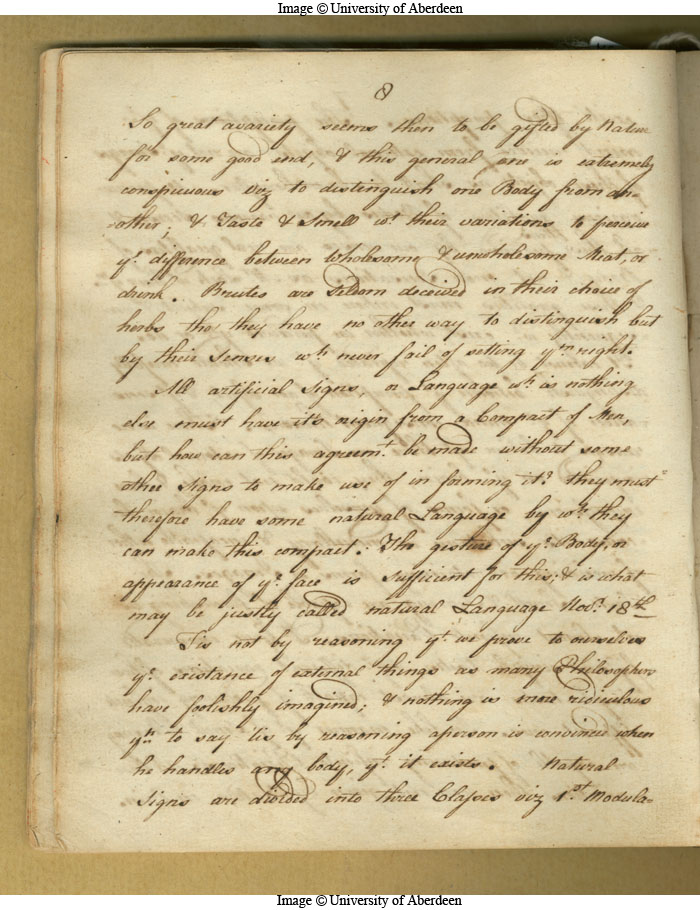 Image © University of Aberdeen
8
So great avariety seems then to be gifted by Nature
for some good end, & this general one is extremely
conspicuous viz to distinguish one Body from an-
other; & Taste & Smell wt. their variations to perceive
ye. difference between wholesome & unwholesome Meat, or
drink. Brutes are seldom deceived in their choice of
herbs tho they have no other way to distinguish but
by their senses wh. never fail of setting ym right.
All artificial Signs, or Language wh. is nothing
else must have its origin from a Compact of Men,
but how can this agreemt. be made without some
other Signs to make use of in forming it? they must
therefore have some natural Language by wh. they
can make this compact. The gesture of ye. Body, or
appearance of ye. face is sufficient for this; & is what
may be justly called natural Language Novr. 18th
Tis not by reasoning yt. we prove to ourselves
ye. existance of external things as many Philosophers
have foolishly imagined; & nothing is more ridiculous
yn to say tis by reasoning aperson is convinced when
he handles any body, yt. it exists. Natural
Signs are divided into three Classes viz 1st. Modula-
Image © University of Aberdeen